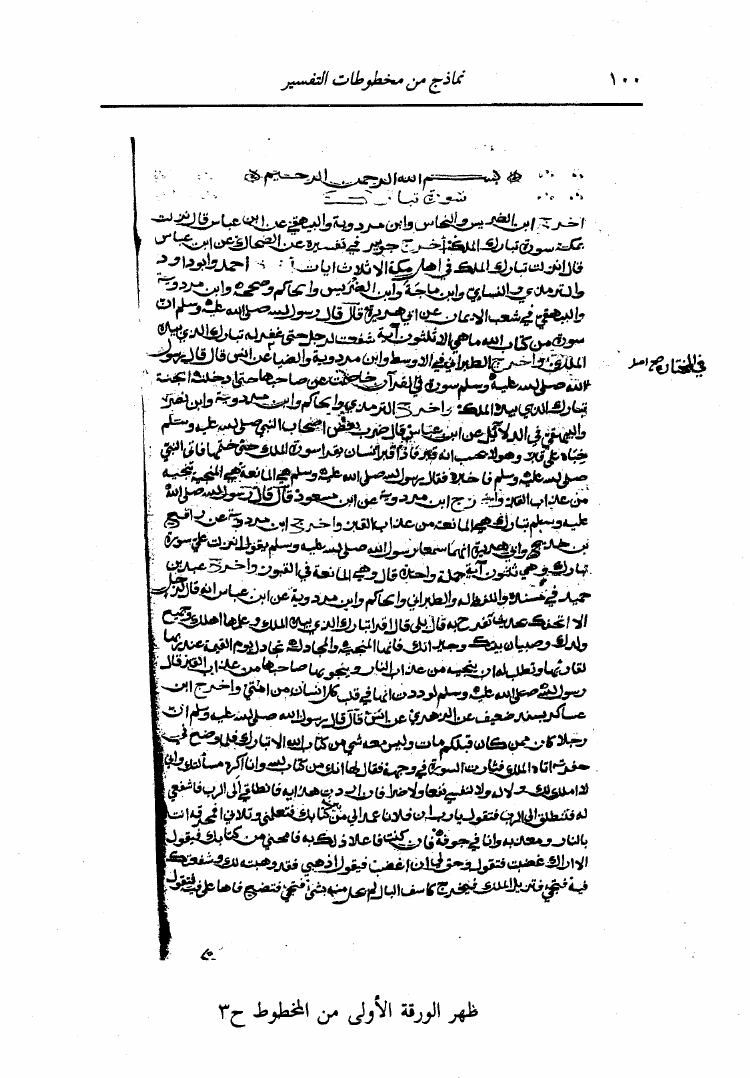 ١٠٠ نماذج من مخطوطات التفسير
بسم الله الرحمن الرحيم
سورة تبارك
اخرج ابن الضريس والنحاس وابن مردوية والبيهقي عن ابن عباس قال نزلت
بمكة سورة تبارك الملك اخرج جويبر في تفسيره عن الضحاك عن ابن عباس
قال انزلت تبارك الملك في اهل مكة الا ثلاث ايات احمد وابو داود
والترمذي والنساي وابن ماجة وابن الضريس والحاكم وصححه وابن مردوية
والبيهقي في شعب الايمان عن ابي هريرة قال قال رسول الله صلى الله عليه وسلم ان
سورة من كتاب الله ما هي الا ثلثون آية شفعت لرجل حتى غفر له تبارك الذي بيده
الملك واخرج الطبراني في الاوسط وابن مردوية والضيا عن انس قال قال رسول
في المختارة صح اصل
الله صلى الله عليه وسلم سورة في القرآن خاصمت عن صاحبها حتى ادخلته الجنة
تبارك الذي بيده الملك واخرج الترمذي والحاكم وابن مردوية وابن نصر
والبيهقي في الدلائل عن ابن عباس قال ضرب بعض اصحاب النبي صلى الله عليه وسلم
خباه على قبر وهو لا يحسب انه قبر فاذا قبر انسان يقرا سورة الملك حتى ختمها فاتى النبي
صلى الله عليه وسلم فاخبره فقال رسول الله صلى الله عليه وسلم هي المانعة هي المنجية تنجيه
من عذاب القبر واخرج ابن مردوية عن ابن مسعود قال قال رسول الله صلى الله
عليه وسلم تبارك هي المانعة من عذاب القبر واخرج ابن مردوية عن رافع
بن خديج وابي هريرة انهما سمعا رسول الله صلى الله عليه وسلم يقول انزلت علي سورة
تبارك وهي ثلثون آية جملة واحدة قال وهي المانعة في القبور واخرج عبد بن
حميد في مسنده واللفظ له والطبراني والحاكم وابن مردوية عن ابن عباس انه قال لرجل
الا اتحفك بحديث تفرح به قال بلى قال اقرا تبارك الذي بيده الملك وعلمها اهلك وجميع
ولدك وصبيان بيتك وجيرانك فانها المنجية والمجادلة تجادل يوم القيمة عند ربها
لقاريها وتطلب له ان ينجيه من عذاب النار وينجو بها صاحبها من عذاب القبر قال
رسول الله صلى الله عليه وسلم لوددت انها في قلب كل انسان من امتي واخرج ابن
عساكر بسند ضعيف عن الزهري عن انس قال قال رسول الله صلى الله عليه وسلم ان
رجلا كان ممن كان قبلكم مات وليس معه شي من كتاب الله الا تبارك فلما وضع في
حفرته اتاه الملك فثارت السورة في وجهه فقال لها انك من كتاب الله وانا اكره مسأتك واني
لا املك لك ولا له ولا لنفسي نفعا ولا ضرا فان اردت هذا به فانطلقي الى الرب فاشفعي
له فتنطلق الى الرب فتقول يا رب ان فلانا عمد الي من كتابك فتعلمني وتلاني افمحرقه انت
بالنار ومعذبه وانا في جوفه فان كنت فاعلا ذلك به فامحني من كتابك فيقول
الا اراك غضبت فتقول وحق لي ان اغضب فيقول اذهبي فقد وهبته لك وشفعتك
فيه فتجي فتزبر الملك فيخرج كاسف البال لم يحل منه بشي فتجي فتضع فاها على فيه فتقول
ظهر الورقة الأولى من المخطوط ح٣